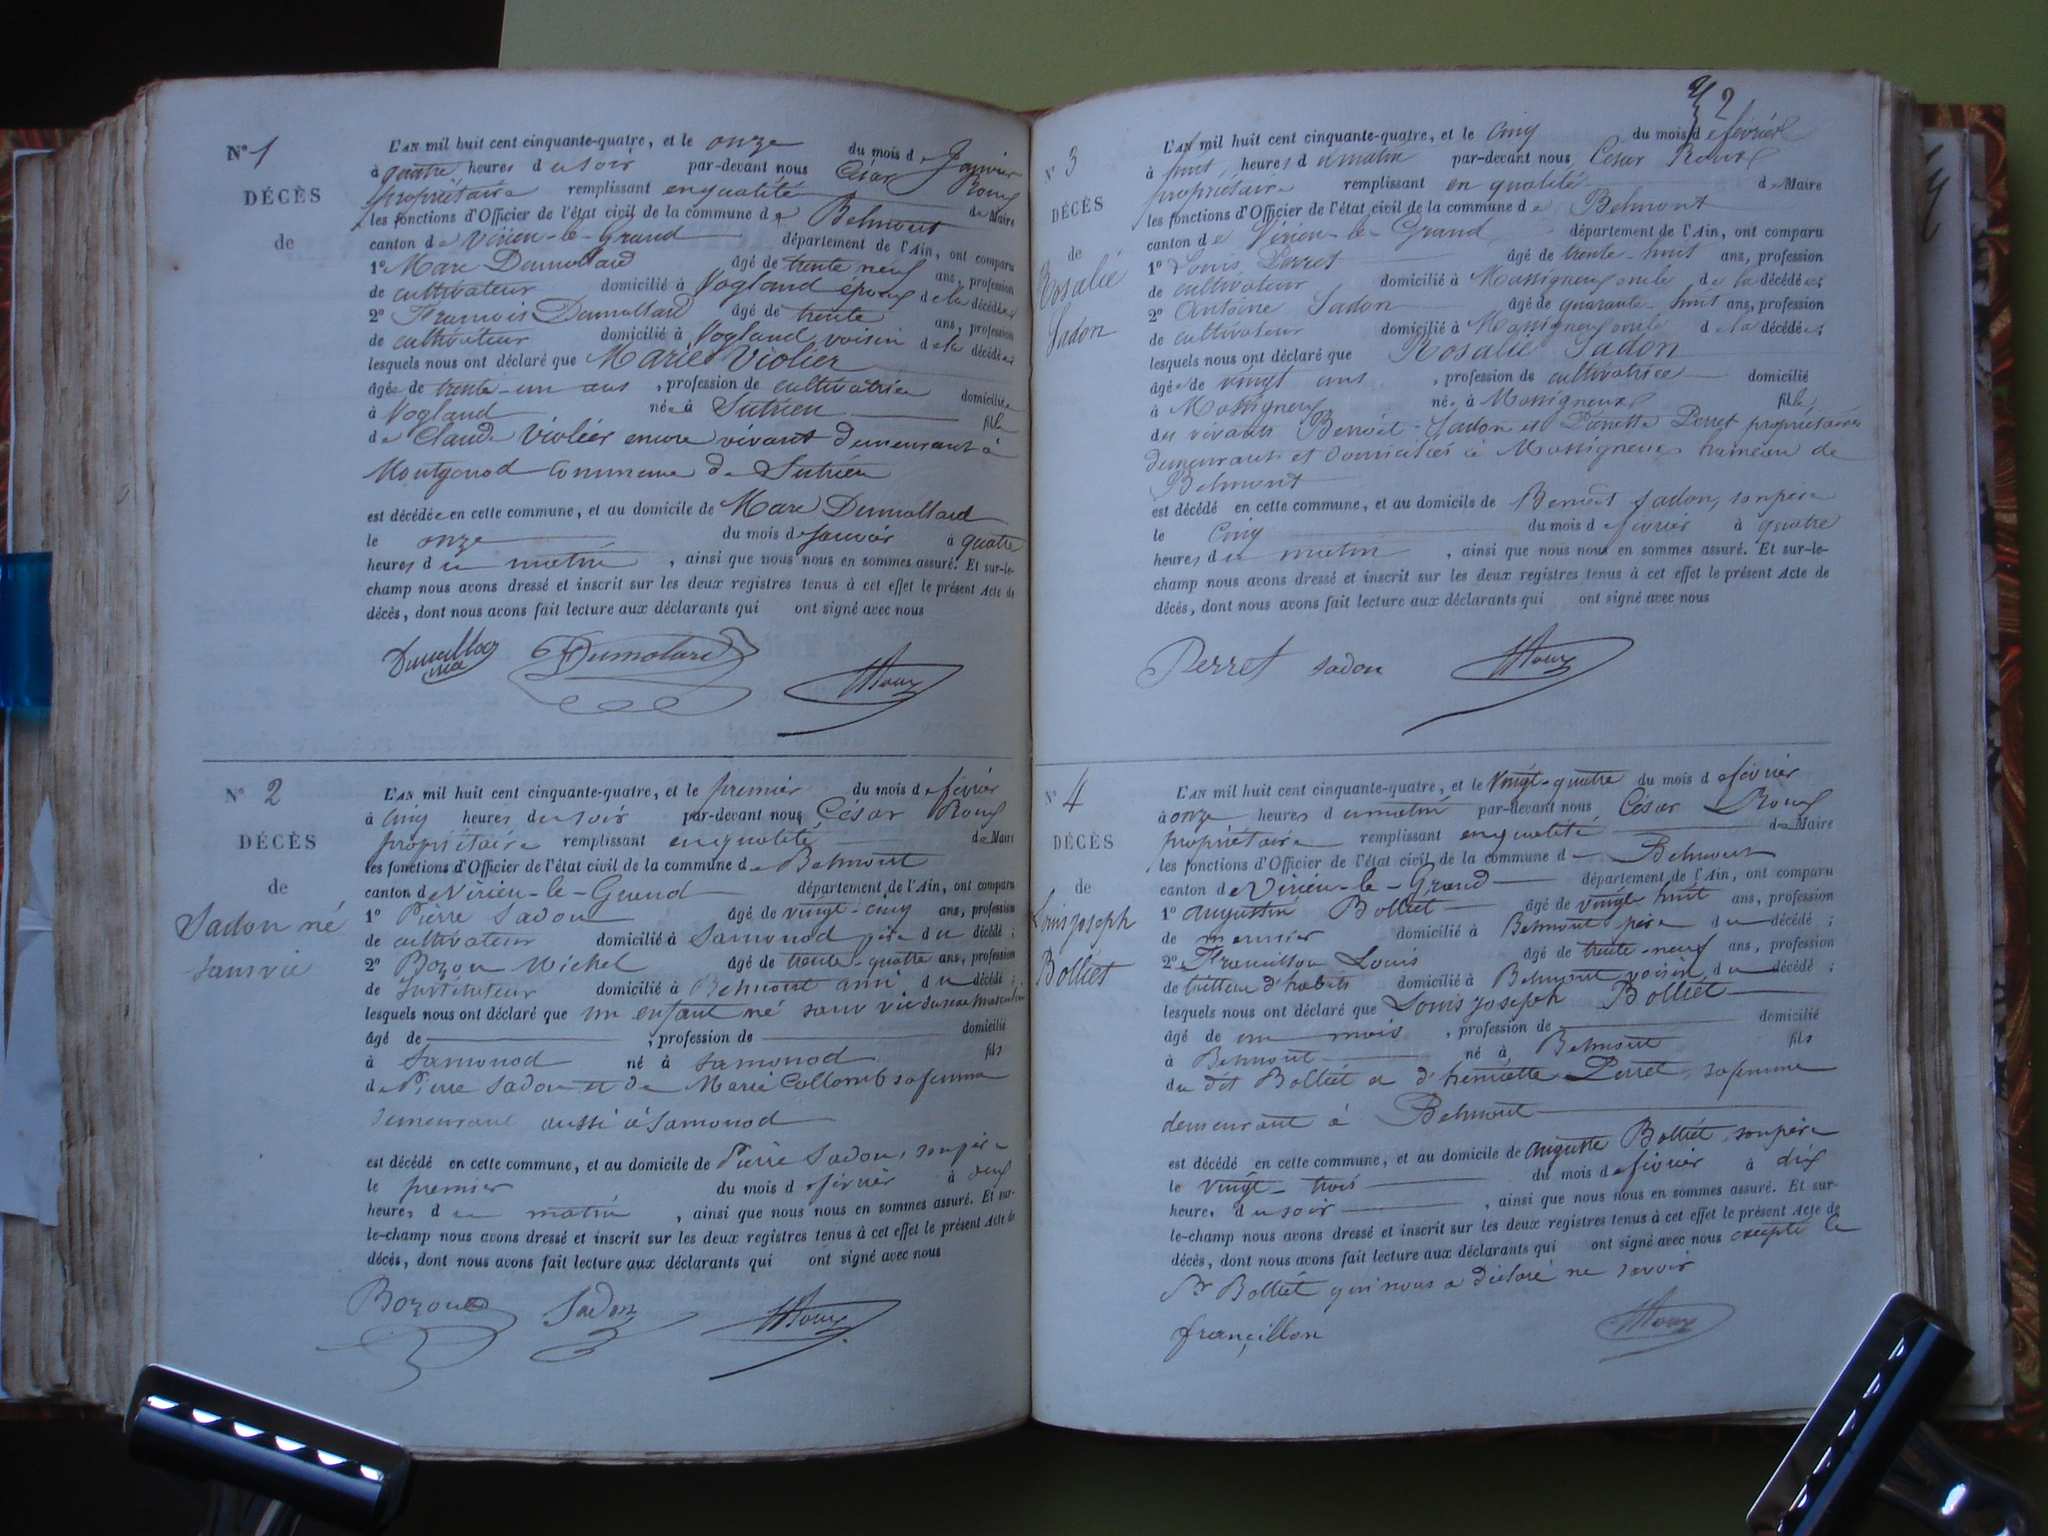 N° 1
DÉCÈS
de
L'AN mil huit cent cinquante-quatre, et le onze du mois de Janvier
à quatre heures du soir par-devant nous César Roux
propriétaire remplissant en qualité de Maire
les fonctions d'Officier de l'état civil de la commune de Belmont
canton de Virieu-le-Grand département de l'Ain, ont comparu
1° Marc Dumollard âgé de trente neuf ans, profession
de cultivateur domicilié à Vogland époux de la décédée;
2° François Dumollard âgé de trente ans, profession
de cultivateur domicilié à Vogland, voisin de la décédée;
lesquels nous ont déclaré que Marie Violier
âgée de trente-un ans, profession de cultivatrice domiciliée
à Vogland née à Sutrieu fille
de Claude Violier encore vivant demeurant à
Montgonod commune de Sutrieu
est décédée en cette commune, et au domicile de Marc Dumollard
le onze du mois de Janvier à quatre
heures du matin, ainsi que nous nous en sommes assuré. Et sur-le-
champ nous avons dressé et inscrit sur les deux registres tenus à cet effet le présent Acte de
décès, dont nous avons fait lecture aux déclarants qui ont signé avec nous
Dumollard Roux
N° 2
DÉCÈS
de
Sadon né
sans vie
L'AN mil huit cent cinquante-quatre, et le premier du mois de février
à cinq heures du soir par-devant nous César Roux
propriétaire remplissant en qualité de Maire
les fonctions d'Officier de l'état civil de la commune de Belmont
canton de Virieu-le-Grand département de l'Ain, ont comparu
1° Pierre Sadon âgé de vingt-cinq ans, profession
de cultivateur domicilié à Samonod père du décédé;
2° Bozon Michel âgé de trente-quatre ans, profession
de Instituteur domicilié à Belmont ami du décédé;
lesquels nous ont déclaré que un enfant né sans vie du sexe masculin
âgé de , profession de domicilié
à Samonod né à Samonod fils
de Pierre Sadon et de Marie Collomb sa femme
demeurant aussi à Samonod
est décédé en cette commune, et au domicile de Pierre Sadon, son père
le premier du mois de février à deux
heures du matin, ainsi que nous nous en sommes assuré. Et sur-
le-champ nous avons dressé et inscrit sur les deux registres tenus à cet effet le présent Acte de
décès, dont nous avons fait lecture aux déclarants qui ont signé avec nous
Bozon Sadon Roux
2
N° 3
DÉCÈS
de
Rosalie
Sadon
L'AN mil huit cent cinquante-quatre, et le cinq du mois de février
à huit heures du matin par-devant nous César Roux
propriétaire remplissant en qualité de Maire
les fonctions d'Officier de l'état civil de la commune de Belmont
canton de Virieu-le-Grand département de l'Ain, ont comparu
1° Louis Perret âgé de trente-huit ans, profession
de cultivateur domicilié à Massigneux oncle de la décédée;
2° Antoine Sadon âgé de quarante-huit ans, profession
de cultivateur domicilié à Massigneux oncle de la décédée;
lesquels nous ont déclaré que Rosalie Sadon
âgée de vingt ans, profession de cultivatrice domicilié
à Massigneux née à Massigneux fille
des vivants Benoît Sadon et Pierrette Perret propriétaires
demeurants et domiciliés à Massigneux hameau de
Belmont
est décédé en cette commune, et au domicile de Benoît Sadon, son père
le cinq du mois de février à quatre
heures du matin, ainsi que nous nous en sommes assuré. Et sur-le-
champ nous avons dressé et inscrit sur les deux registres tenus à cet effet le présent Acte de
décès, dont nous avons fait lecture aux déclarants qui ont signé avec nous
Perret sadon Roux
N° 4
DÉCÈS
de
Louis joseph
Bolliet
L'AN mil huit cent cinquante-quatre, et le vingt-quatre du mois de février
à onze heures du matin par-devant nous César Roux
propriétaire remplissant en qualité de Maire
les fonctions d'Officier de l'état civil de la commune de Belmont
canton de Virieu-le-Grand département de l'Ain, ont comparu
1° Augustin Bolliet âgé de vingt huit ans, profession
de meunier domicilié à Belmont père du décédé;
2° Francillon Louis âgé de trente-neuf ans, profession
de tailleur d'habits domicilié à Belmont voisin du décédé;
lesquels nous ont déclaré que Louis joseph Bolliet
âgé de un mois, profession de domicilié
à Belmont né à Belmont fils
du dit Bolliet et d'henriette Perret, sa femme
demeurant à Belmont
est décédé en cette commune, et au domicile de Auguste Bolliet, son père
le vingt-trois du mois de février à dix
heures du soir, ainsi que nous nous en sommes assuré. Et sur-
le-champ nous avons dressé et inscrit sur les deux registres tenus à cet effet le présent Acte de
décès, dont nous avons fait lecture aux déclarants qui ont signé avec nous excepté le
Sr Bolliet qui nous a déclaré ne savoir
françillon Roux